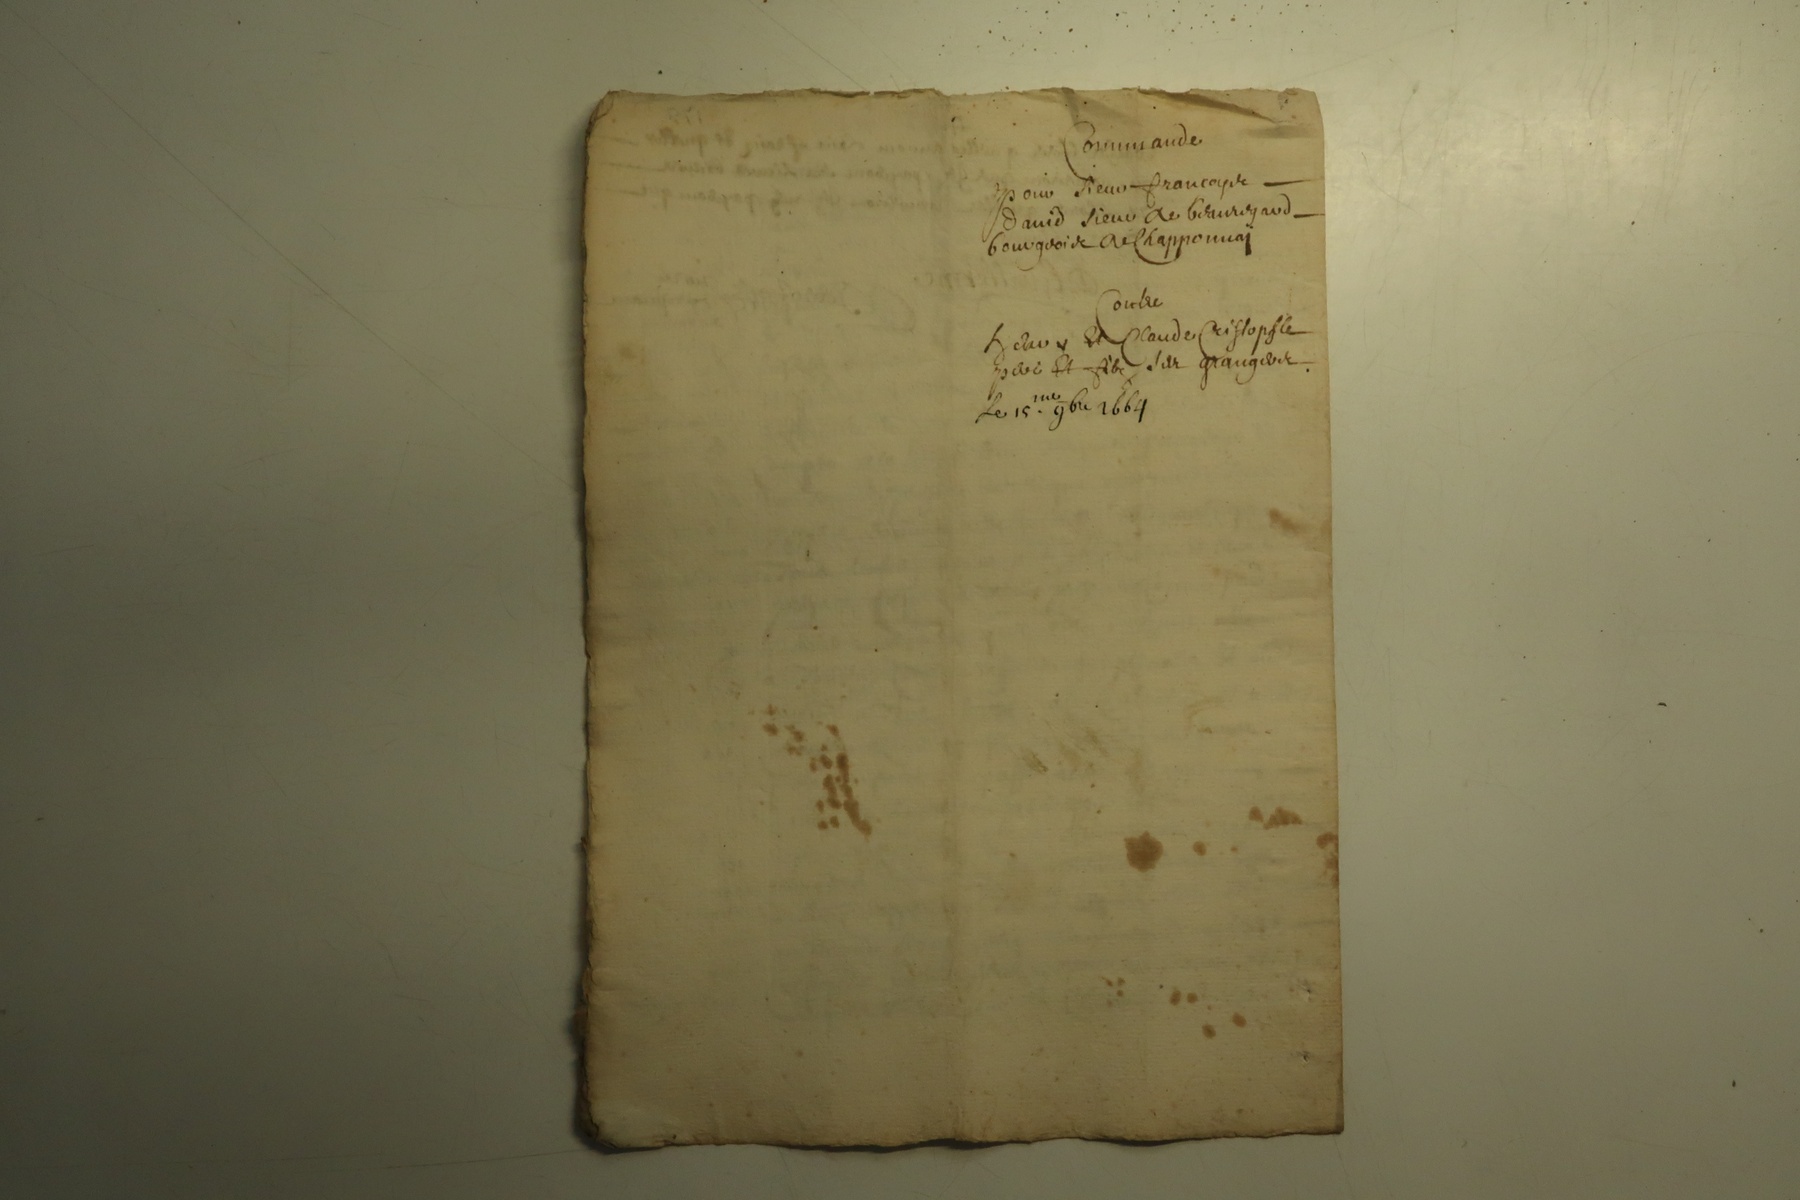 Commande
pour sieur francoys
David sieur de beauregard
bourgois de Chapponnai
Contre
et Claude Cristophle
pere et fils ses grangers.
Le 15.me 9bre 1664